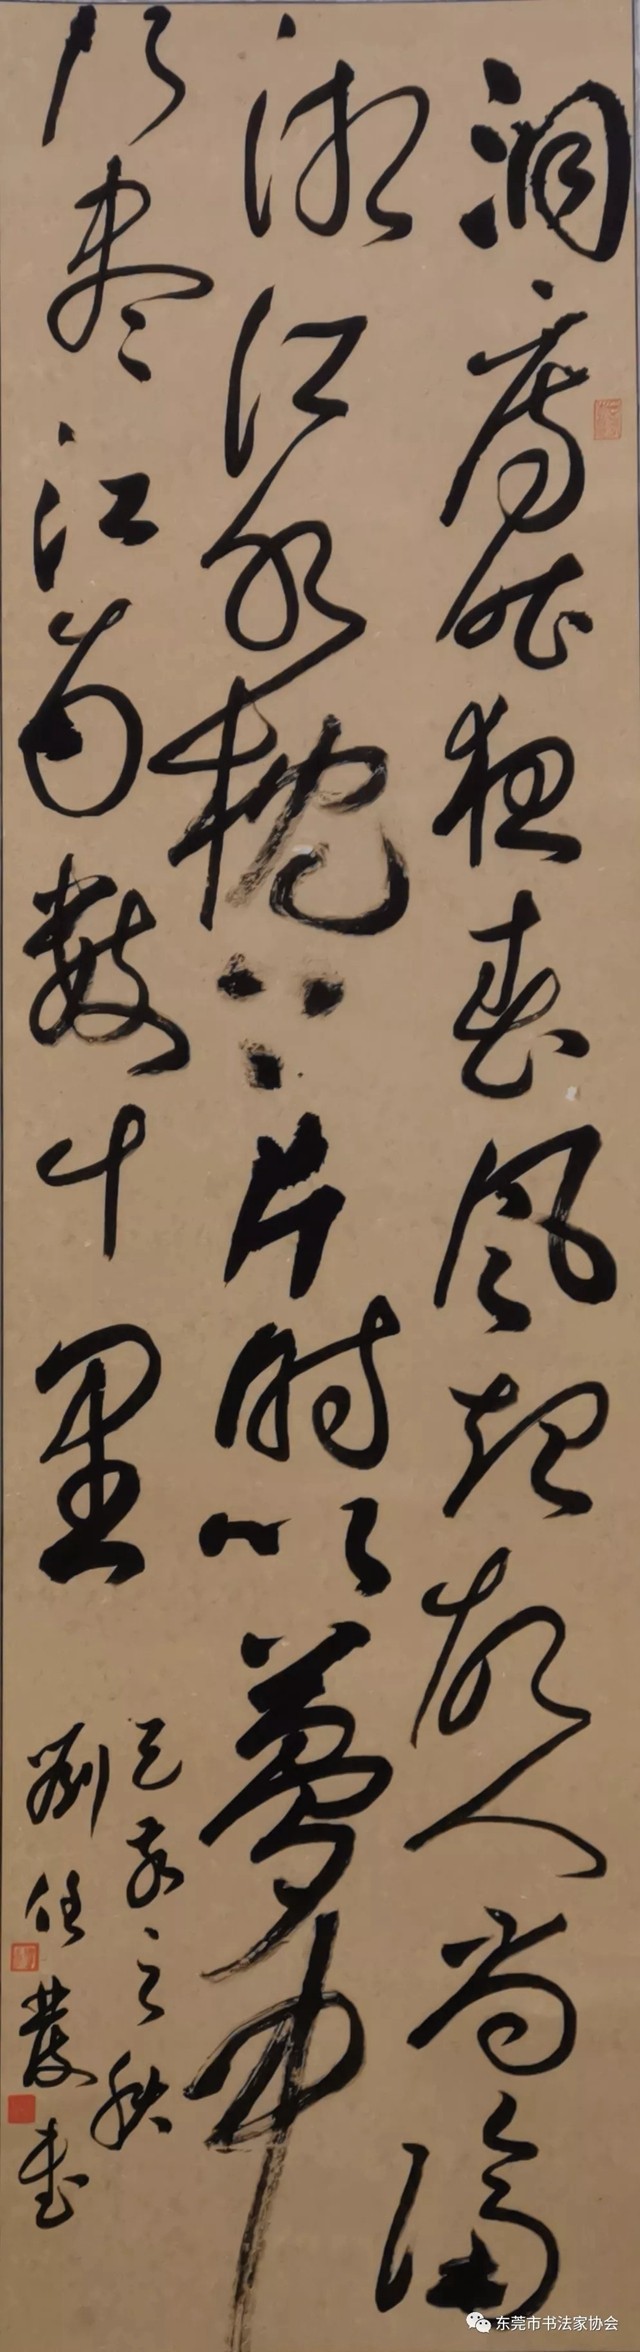 洞房昨夜春风起故人尚隔
湘江水枕上片时梦中
行尽江南數千里
己亥之秋
劉任發書
东莞市书法家协会